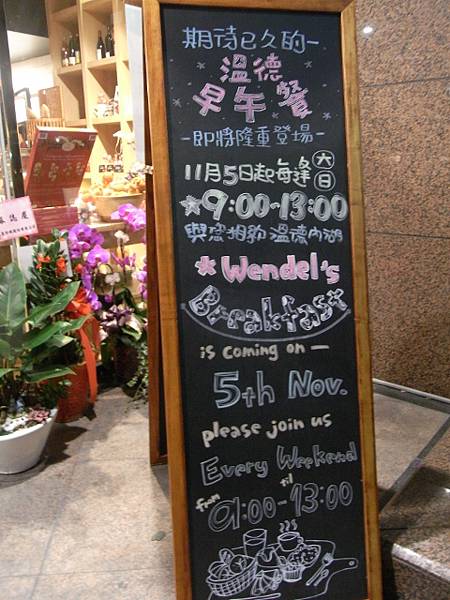 期待已久的-
溫德
早午餐
-即將隆重登場-
11月5日起每逢 六 日
9:00-13:00
與您相約溫德內湖
Wendel's
Breakfast
is coming on —
5th Nov.
please join us
Every Weekend
from 9:00-til 13:00